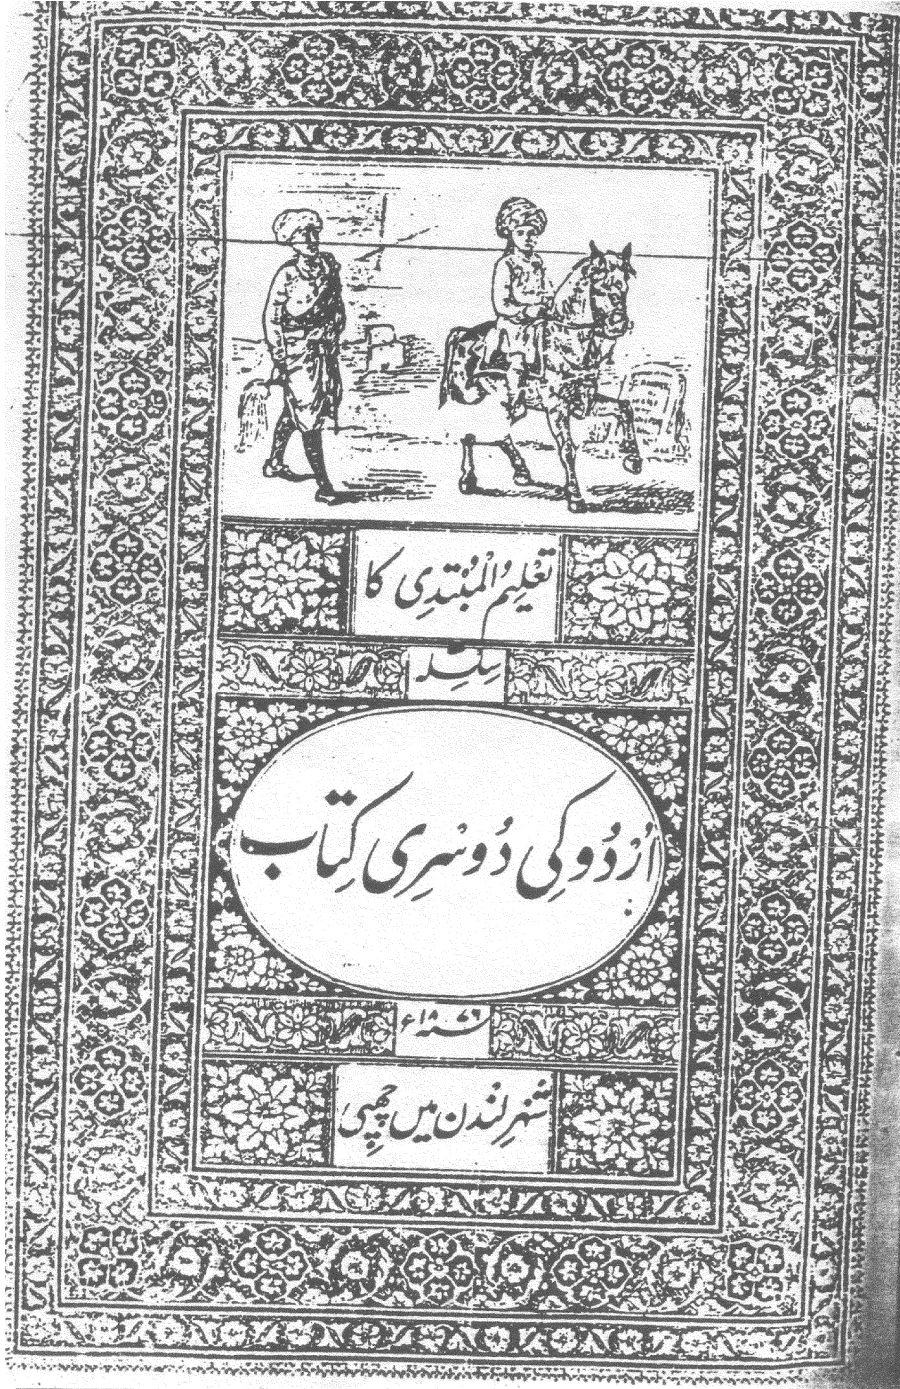 تَعْلِیمُ الْمُبْتَدِی کا
سِلْسِلہ
اُرْدُو کِی دُوسْرِی کِتاب
شَہْرِ لَنْدَن مَیں چَھپِی